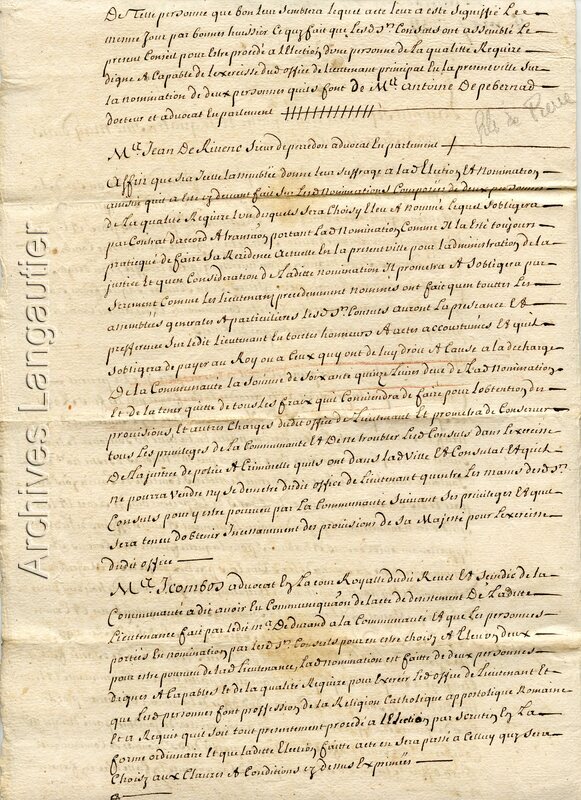 De telle personne que bon leur semblera lequel acte leur a esté signiffié Le
mesme jour par bonnes hussier Ce quy fait que Les dSrs Consuls ont assemblé Le
present Conseil pour Estre procedé a L'Election d'une personne de la qualité Requize
digne & Capable de L'exersse dud office de Lieutenant principal En la presente ville Sur
la nomination de deux personnes quils font de Me Antoine Depebernad
docteur et advocat En parlement
fils de Pierre
Me Jean De Rivenc Sieur de advocat En parlement
Affin que sur Icelle Lassamblée donne leur suffrage a lad Election Et Nomination
ainsin quil a esté cy devant fait Sur Les Nominations Composées de deux personnes
de La qualité Requize L'un desquels Sera Choisy Eleu & nommé Lequel Sobligera
par Contrat daccord & transaon portant Lad Nomination Comme Il La Esté toujours
pratiequé de faire Sa Residence Actuelle En la presente ville pour Ladministration de la
justice Et quen Consideration de Ladite nomination Il promettra & Sobligera par
Serement Comme Les Lieutenans precedemment nommés ont fait quen toutes Les
assemblées generales & particulieres Les dSrs Consuls auront La presceance Et
prefference Sur ledit Lieutenant En toutes honneurs & actes accoustumés Et quil
Sobligera de payer au Roy ou a Ceux quy ont de luy droit & Cause a la descharge
De la Communauté La Somme de Soixante quinze Livres deue de Lad Nomination
Et de la tenir quitte de tous Les fraix quil Conviendra de faire pour Lobtention des
provisions, Et autres Charges dudit office de Lieutenant Et promettra de Conserver
tous Les privileges de La Communauté Et De ne troubler Lesd Consuls dans Lexersse
De La justice de police & Criminelle quils ont dans La ville Et Consulat Et quil
ne pourra vendre ny se demetre dudit office de Lieutenant quentre Les mains desd Srs
Consuls pour y estre pourveu par La Communauté Suivant Ses privileges Et que
Sera tenu dobtenir Incessamment des provisions de Sa Majesté pour Lexersse
dudit office
Me Jcombos advocat En La Cour Royalle dudit Revel Et Scindic de la
Communauté a dit avoir Eu Communiquaon de Lacte de desistement De Ladite
Lieutenance fait par Ledit Me Dedurand a La Communauté Et que Les personnes
portées En nomination par Lesd Srs Consuls pour en estre choisy & Eleu un deux
pour estre pourveu de Lad Lieutenance, Lad nomination est faitte de deux personnes
dignes & Capables Et de la qualité Requize pour Exercer Led office de Lieutenant Et
que Lesd personnes font proffession de La Religion Catholique appostolique Romaine
Et a Requis quil soit tout presentement procedé a L'Election par scrutin En La
forme ordinaire Et que Ladite Election faitte acte en Sera passé a Celluy quy sera
Choisy aux Clauses & Conditions cy dessus Exprimées
Archives Langautier